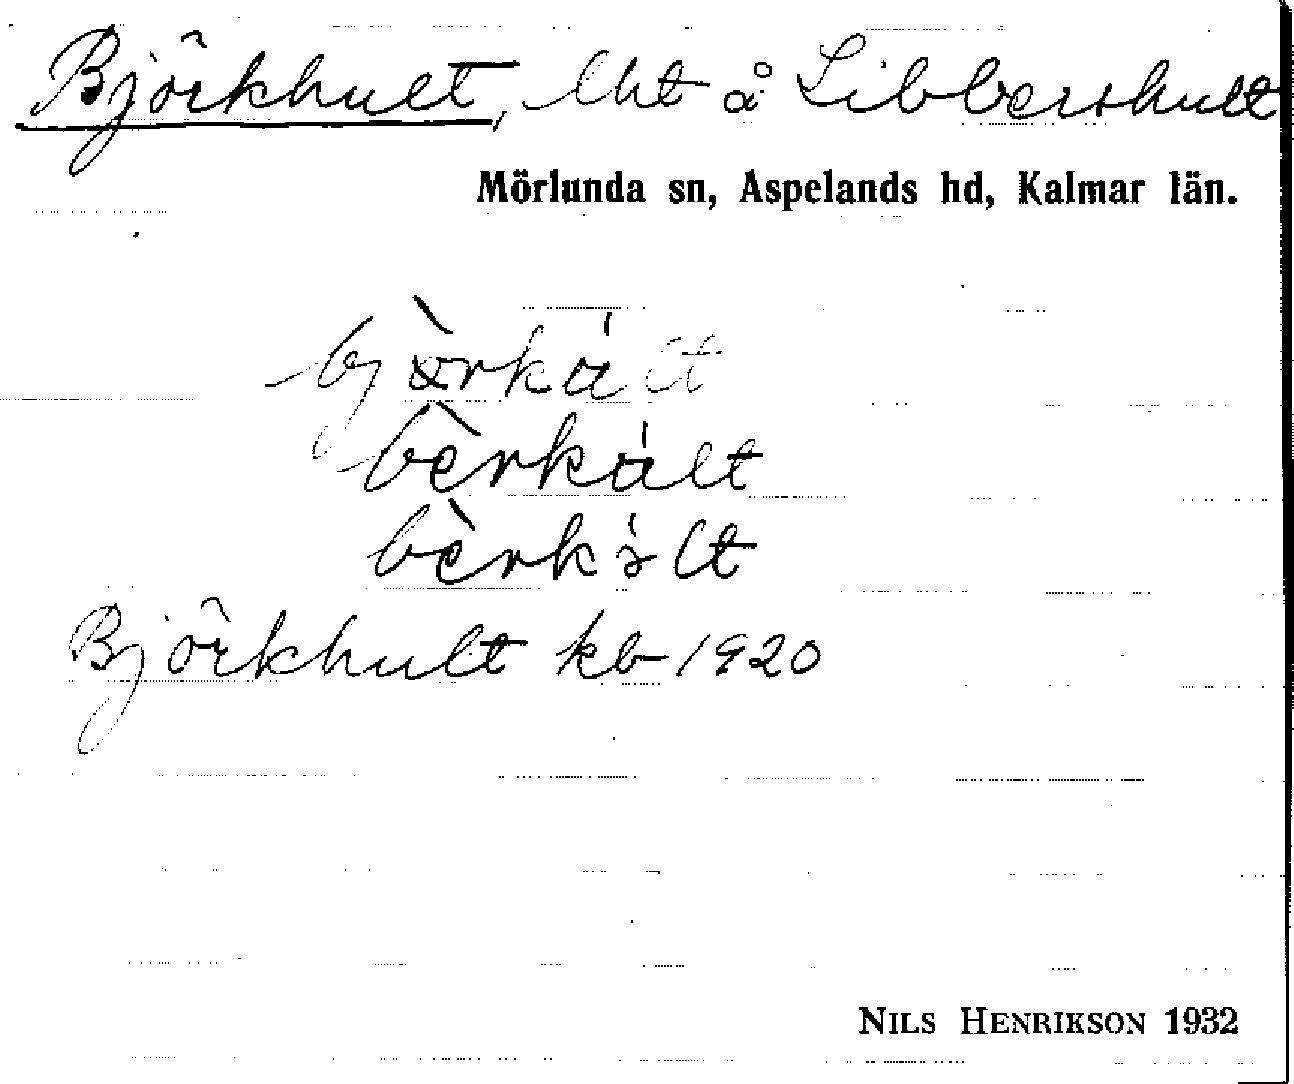 Björkhult, lht å Libbershult
Mörlunda sn, Aspelands hd, Kalmar län.
bjòrkált
bèrkált
Björkhult kb 1920
NILS HENRIKSON 1932